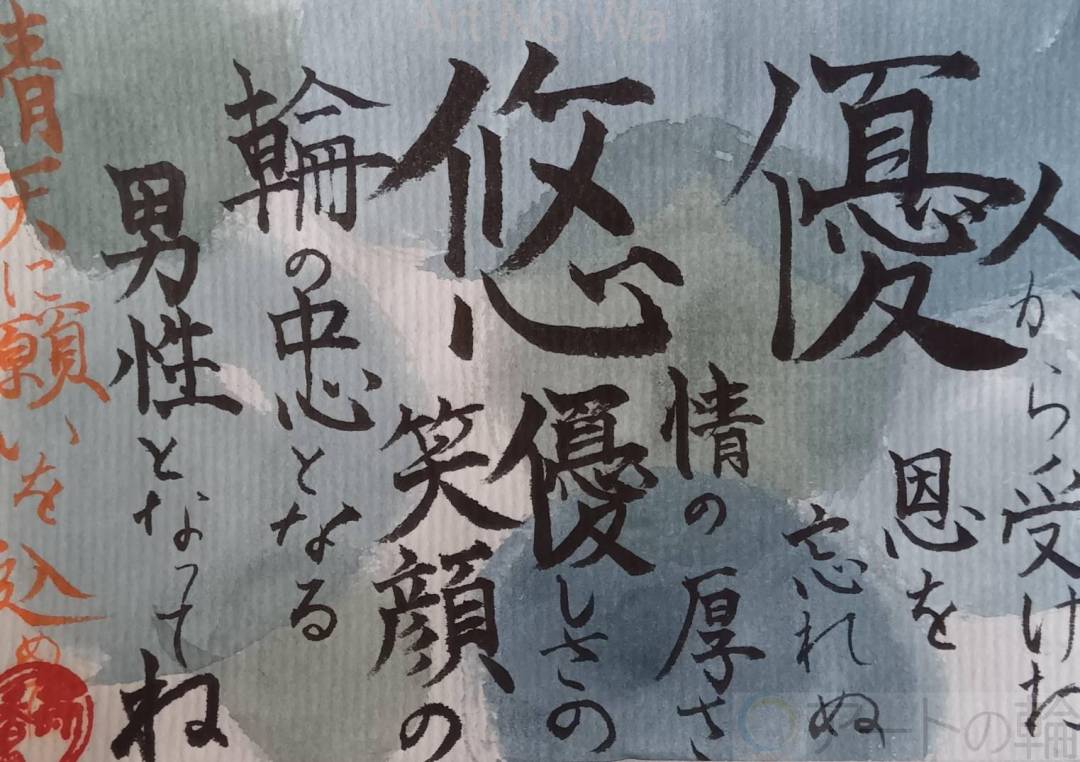 優悠
人から受けた
恩を
忘れぬ
情の厚さ
優しさの
笑顔の
輪の中心となる
男性となってね
青天に願いを込め
Art No Wa
アートの輪